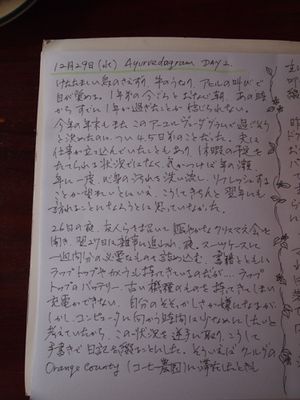 12月29日(水) Ayurvedagram DAY 2.
けたたましい鳥のさえずり、牛のうなり、アヒルの叫びで
目が覚める。1年前の今ごろとおなじ朝。あの時
から すでに1年が過ぎたことが信じられない。
今年の年末もまた このアーユルヴェーダグラムで過ごそう
と決めたのは、つい4、5日前のことだった。夫は
仕事が立て込んでいたこともあり、休暇の予定を
たてられる状況ではなく、気がつけば年の瀬。
年に一度、心身の汚れを洗い流し、リフレッシュする
ことが望ましいとはいえ、こうしてきちんと翌年にも
訪れることになろうとは思っていなかった。
26日の夜、友人らを招いて賑やかなクリスマス会を
開き、翌27日は雑事に追われ、夜、スーツケースに
一週間分の必要なものを詰め込む。書籍とともに
ラップトップもちゃっかり持ってきているのだが…ラップ
トップのバッテリー、古い機種のものを持ってきてしまい
充電ができない。自分のそそっかしさが嫌になるが、
しかし、コンピュータに向かう時間は少なめにしたいと
考えていたから、この状況を逆手に取り、こうして
手書きで日記を綴ることにした。そういえば クールグの
Orange County (コーヒー農園)に滞在したときも